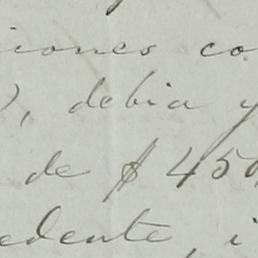 iciones co
), debia y
de $ 450
edente, i